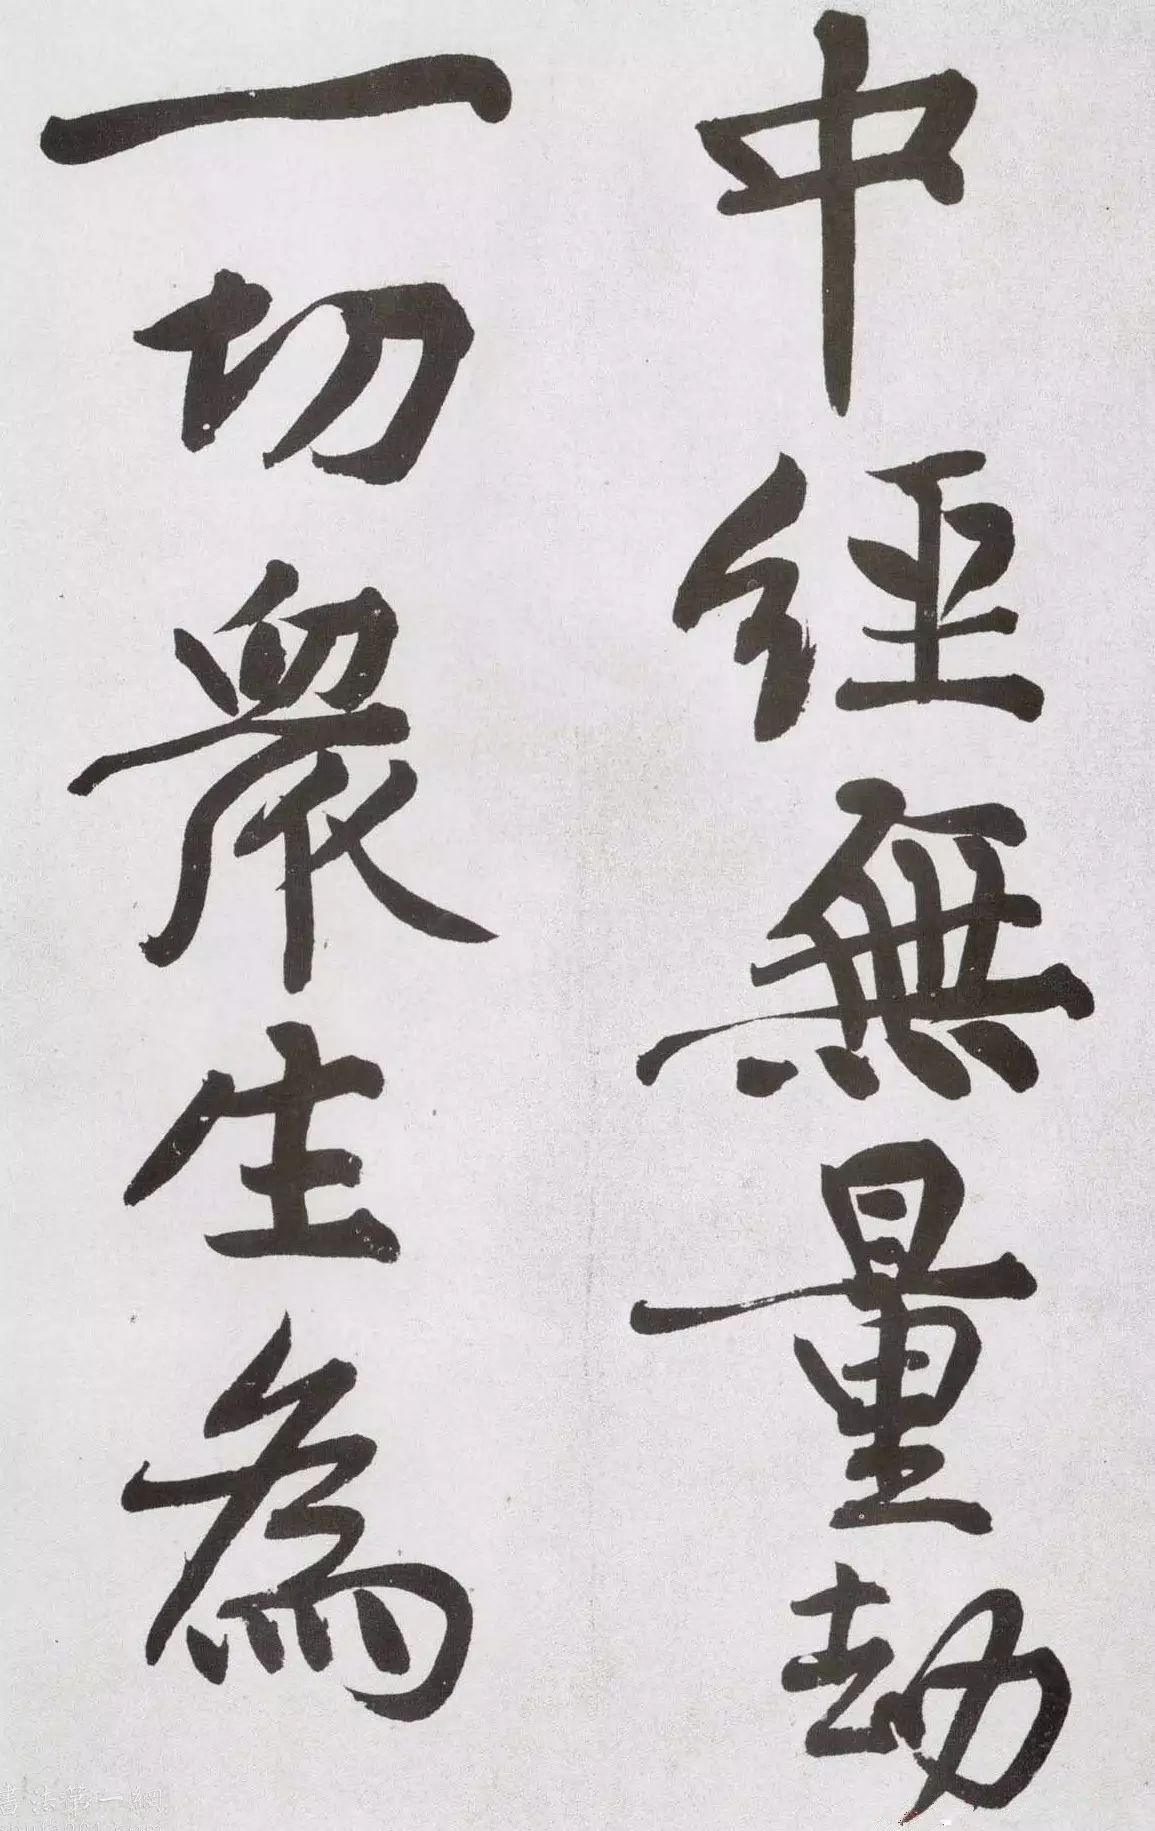 中經無量劫
一切眾生為
書法第一網